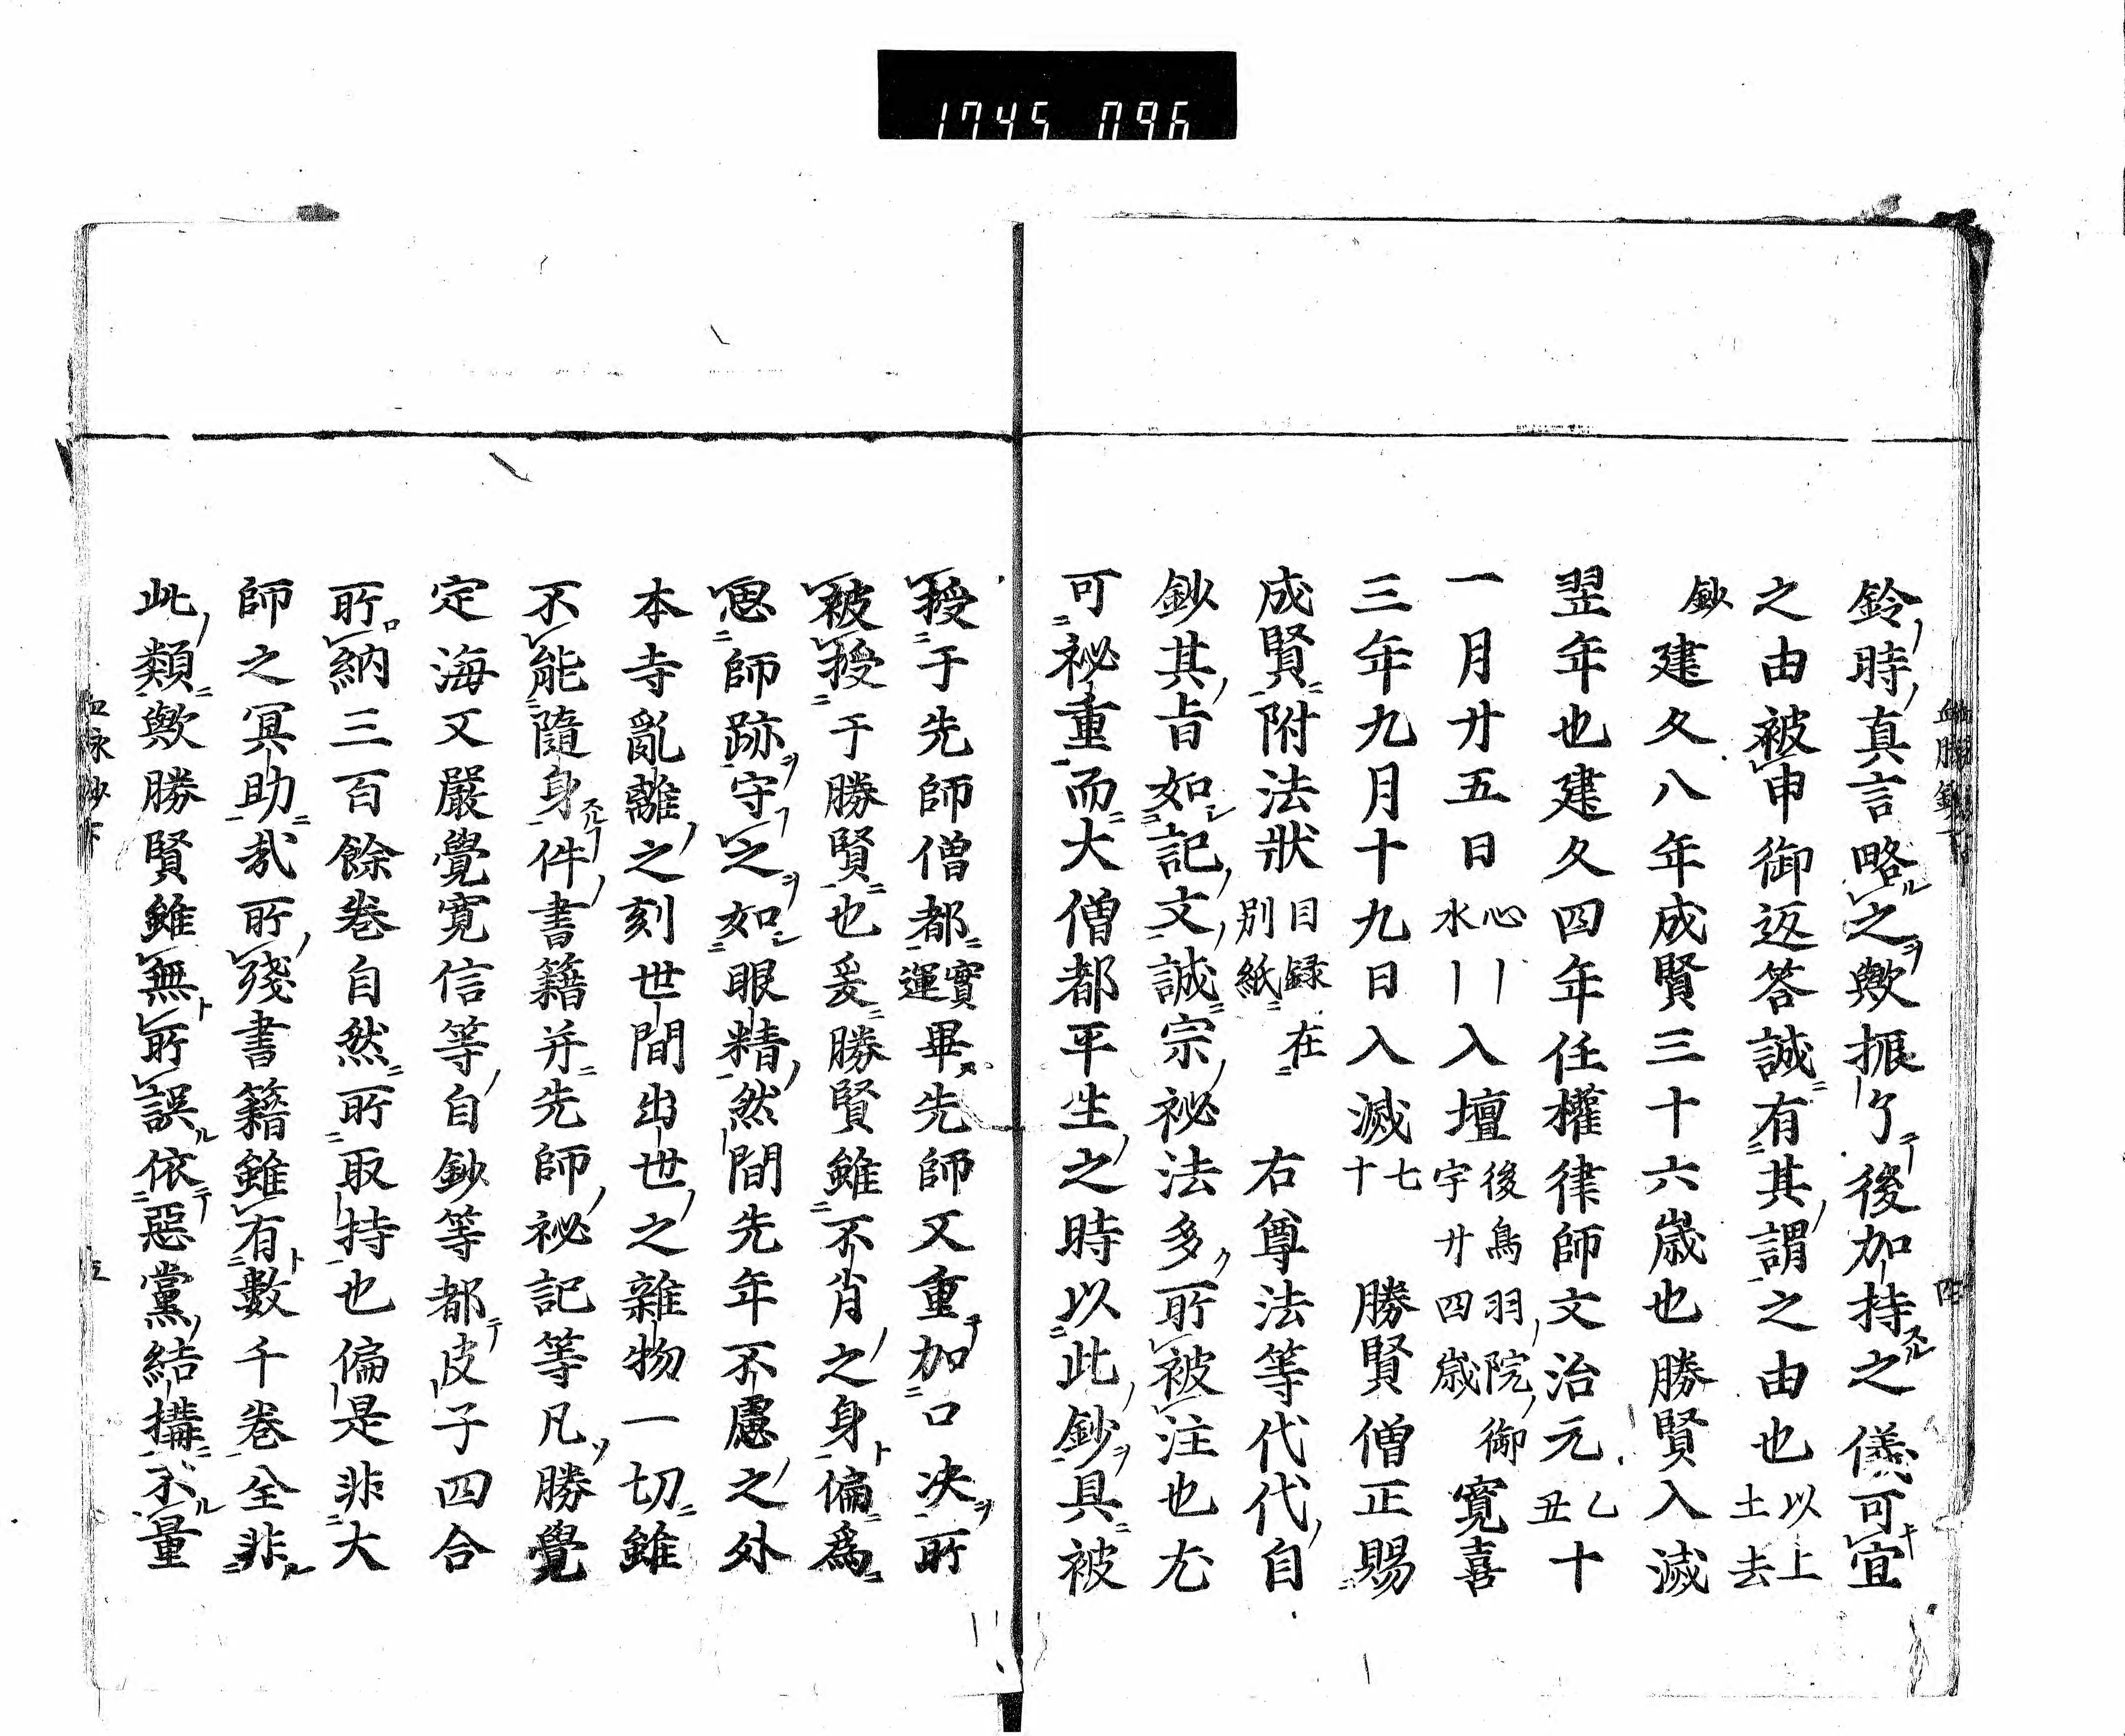 1745 096
鈴時真言略之歟振了後加持之儀可宜
之由被申御返答誠有其謂之由也以上
土去
鈔建久八年成賢三十六歳也勝賢入滅
翌年也建久四年任權律師文治元乙
丑十
一月廿五日心
水｜｜入壇後鳥羽院御
宇廿四歳寛喜
三年九月十九日入滅七
十勝賢僧正賜
成賢附法狀目録在
別紙右尊法等代代自
鈔其旨如記文誠宗秘法多所被注也尤
可祕重而大僧都平生之時以此鈔具被
授于先師僧都實
運畢先師又重加口決所
被授于勝賢也爰勝賢雖不肖之身偏爲
思師跡守之如眼精然間先年不慮之外
本寺亂離之刻世間出世之雜物一切雖
不能隨身件書籍并先師祕記等凡勝覺
定海又嚴覺寛信等自鈔等都皮子四合
所納三百餘巻自然所取持也偏是非大
師之冥助哉所殘書籍雖有數千巻全非
此類歟勝賢雖無所誤依惡黨結構不量